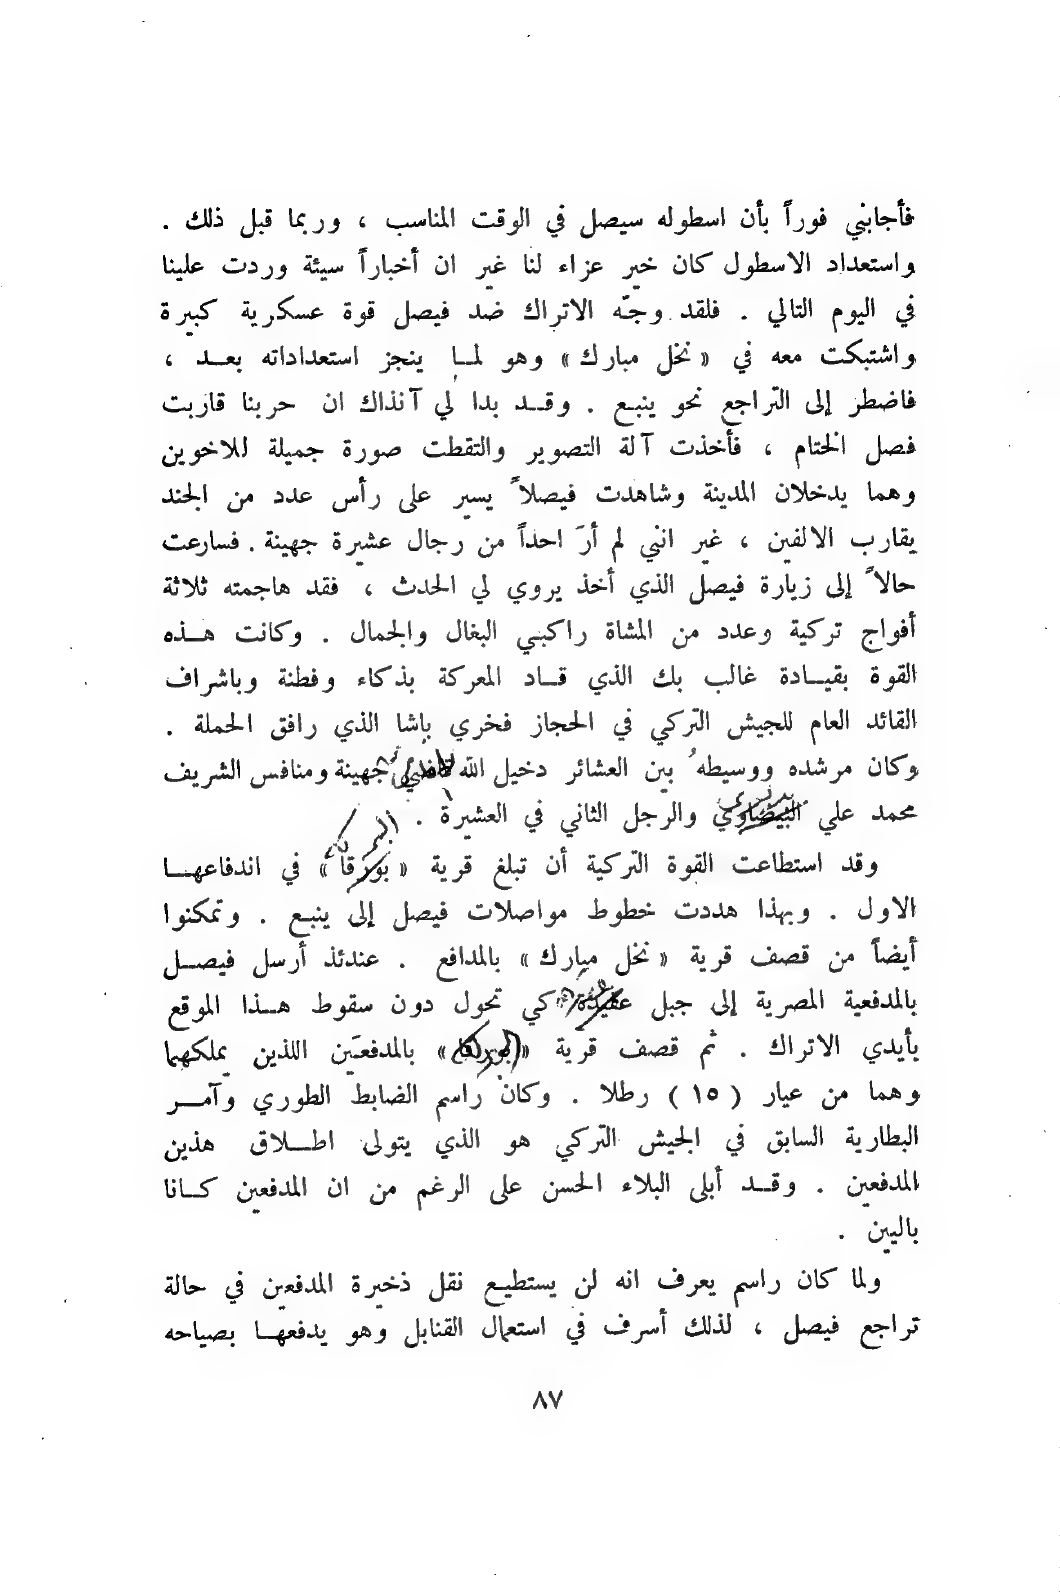 فأجابني فوراً بأن اسطوله سيصل في الوقت المناسب ، وربما قبل ذلك .
واستعداد الاسطول كان خير عزاء لنا غير ان أخباراً سيئة وردت علينا
في اليوم التالي . فلقد وجّه الاتراك ضد فيصل قوة عسكرية كبيرة
واشتبكت معه في « نخل مبارك » وهو لما ينجز استعداداته بعد ،
فاضطر إلى التراجع نحو ينبع . وقد بدا لي آنذاك ان حربنا قاربت
فصل الختام ، فأخذت آلة التصوير والتقطت صورة جميلة للاخوين
وهما يدخلان المدينة وشاهدت فيصلاً يسير على رأس عدد من الجند
يقارب الالفين ، غير انني لم أرَ احداً من رجال عشيرة جهينة . فسارعت
حالاً إلى زيارة فيصل الذي أخذ يروي لي الحدث ، فقد هاجمته ثلاثة
أفواج تركية وعدد من المشاة راكبي البغال والجمال . وكانت هذه
القوة بقيادة غالب بك الذي قاد المعركة بذكاء وفطنة وباشراف
القائد العام للجيش التركي في الحجاز فخري باشا الذي رافق الحملة .
وكان مرشده ووسيطهُ بين العشائر دخيل الله جهينة ومنافس الشريف
محمد علي البيضاوي والرجل الثاني في العشيرة .
وقد استطاعت القوة التركية أن تبلغ قرية « بوركا » في اندفاعها
الاول . وبهذا هددت خطوط مواصلات فيصل إلى ينبع . وتمكنوا
أيضاً من قصف قرية « نخل مبارك » بالمدافع . عندئذ أرسل فيصل
بالمدفعية المصرية إلى جبل كي تحول دون سقوط هذا الموقع
بأيدي الاتراك . ثم قصف قرية » بالمدفعَين اللذين يملكهما
وهما من عيار ( ١٥ ) رطلا . وكان راسم الضابط الطوري وآمر
البطارية السابق في الجيش التركي هو الذي يتولى اطلاق هذين
المدفعين . وقد أبلى البلاء الحسن على الرغم من ان المدفعين كانا
باليين .
ولما كان راسم يعرف انه لن يستطيع نقل ذخيرة المدفعين في حالة
تراجع فيصل ، لذلك أسرف في استعمال القنابل وهو يدفعها بصياحه
٨٧